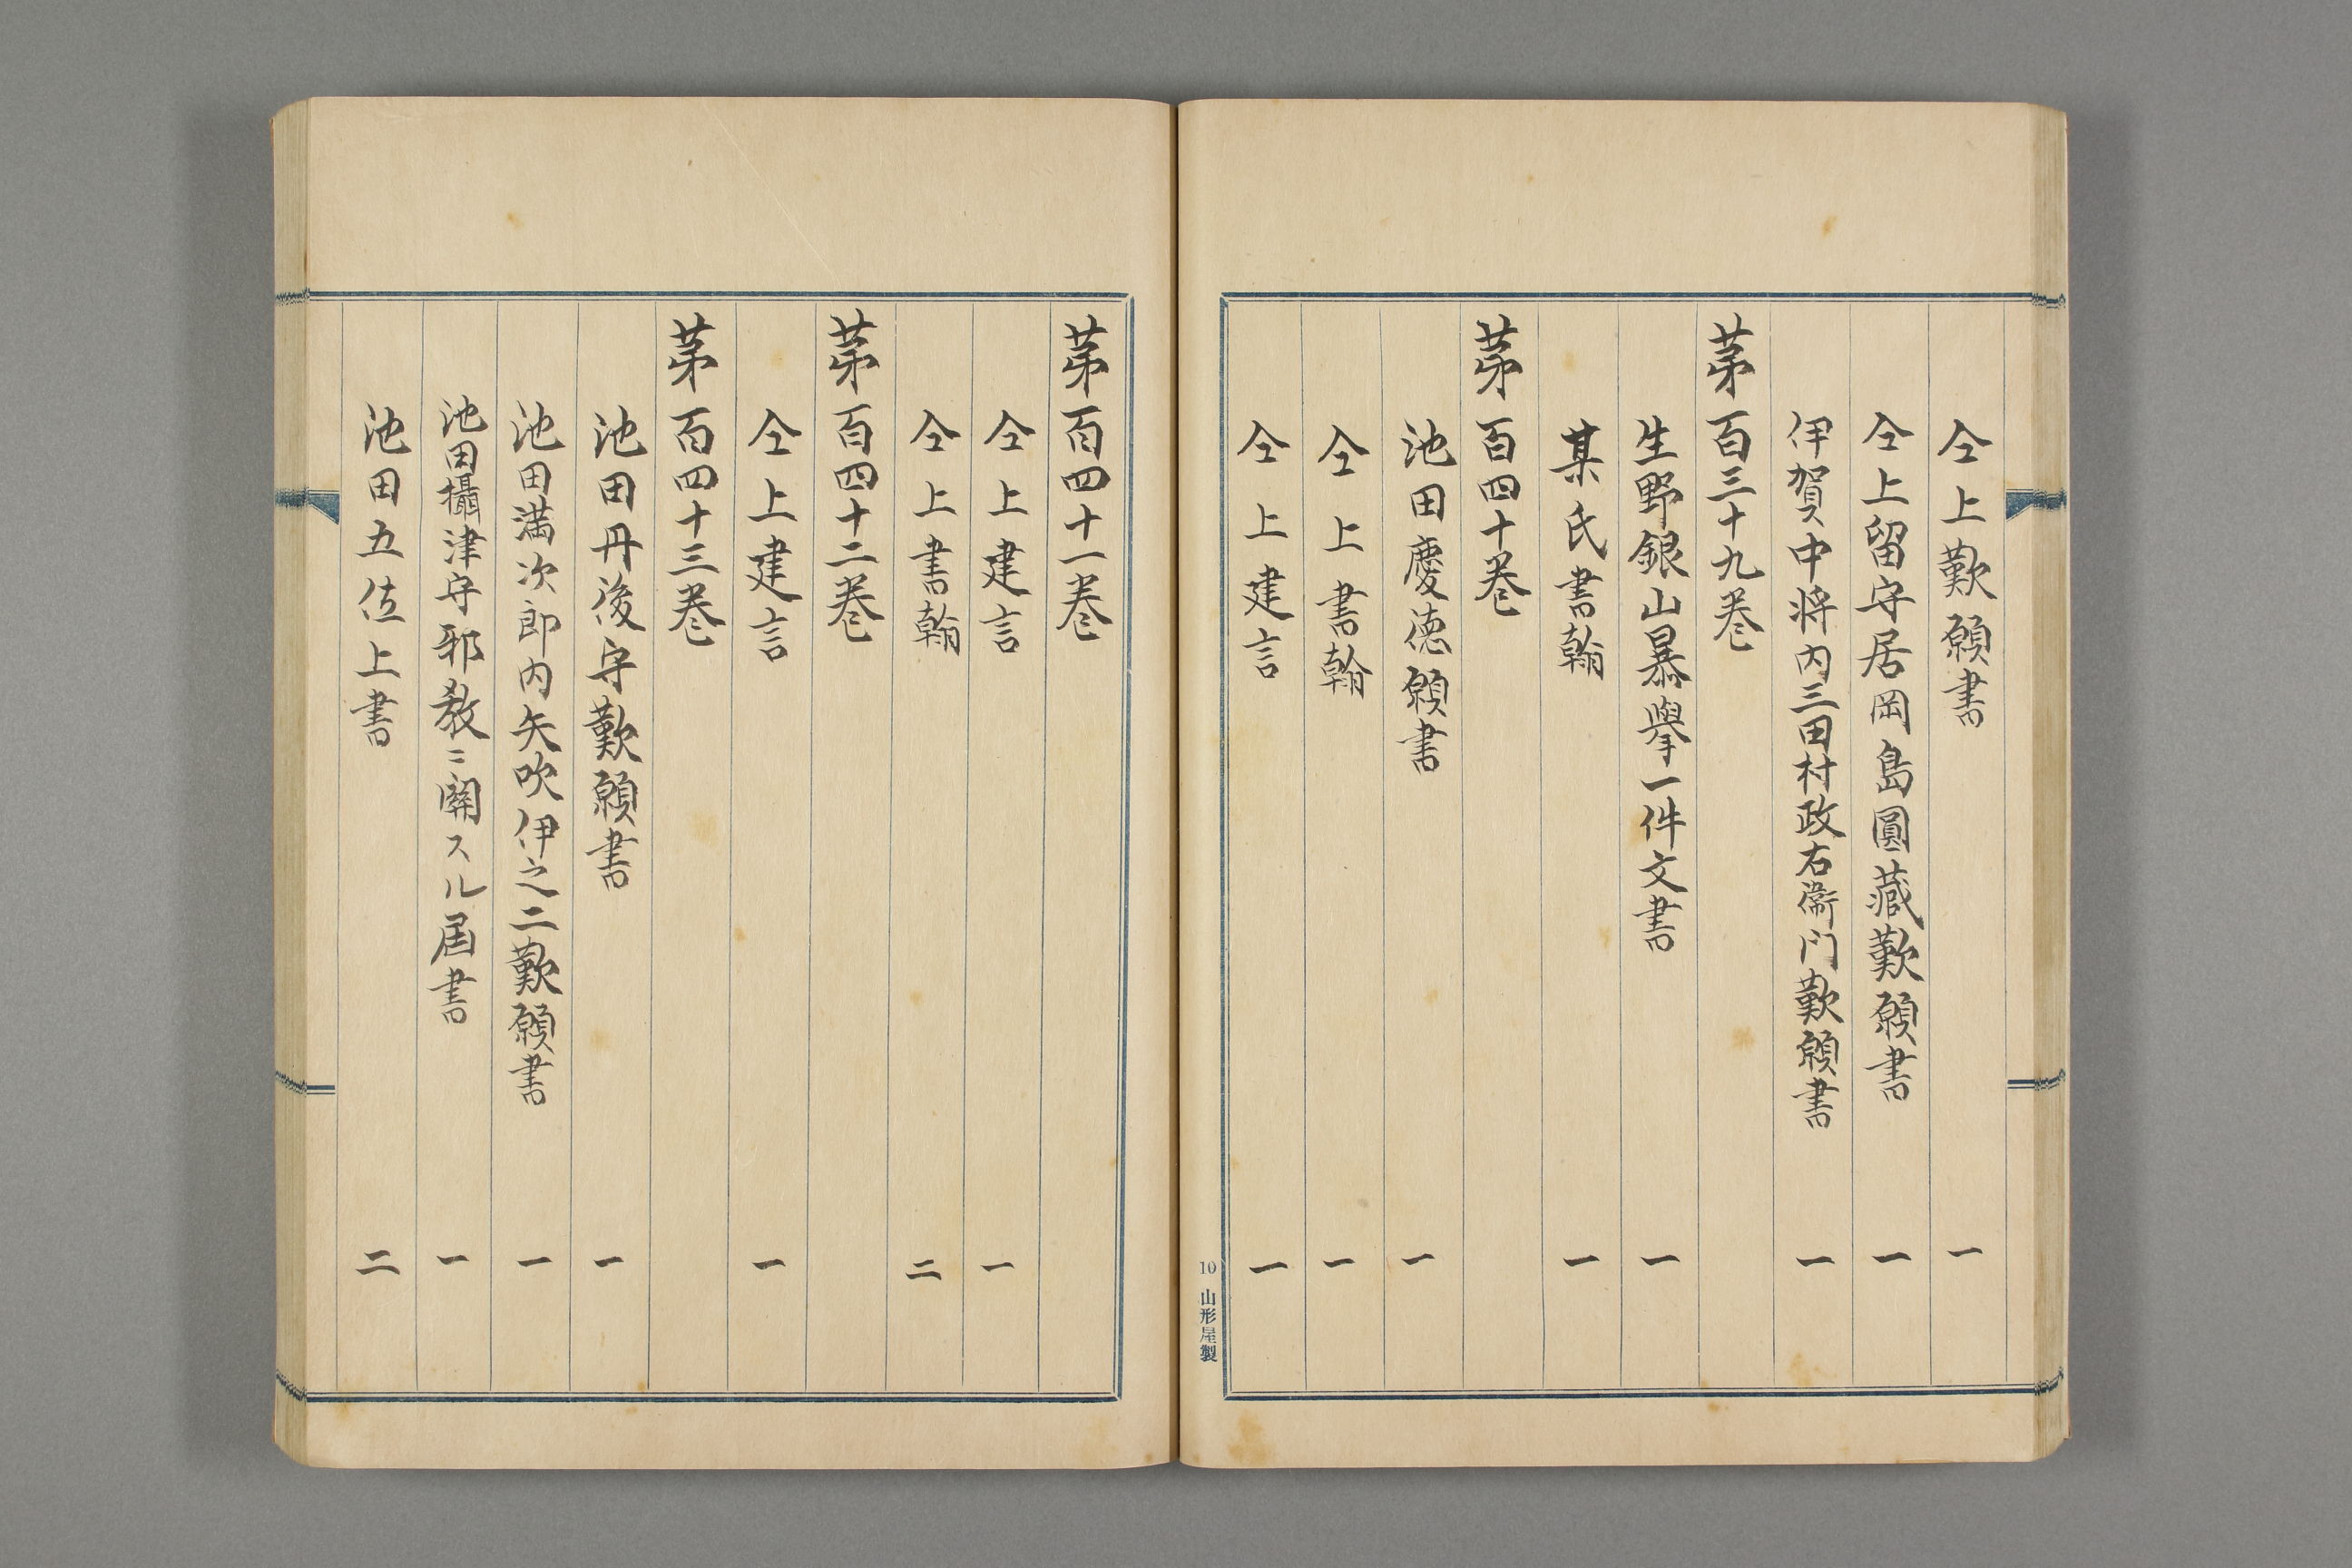 仝上歎願書 一
仝上留守居岡島圓藏歎願書 一
伊賀中將内三田村政右衞門歎願書 一
苐百三十九巻
生野銀山暴擧一件文書 一
某氏書翰 一
苐百四十巻
池田慶徳願書 一
仝上書翰 一
仝上建言 一
10 山形屋製
苐百四十一巻
仝上建言 一
仝上書翰 二
苐百四十二巻
仝上建言 一
苐百四十三巻
池田丹後守歎願書 一
池田満次郎内矢吹伊之二歎願書 一
池田攝津守邪教ニ關スル届書 一
池田五位上書 二